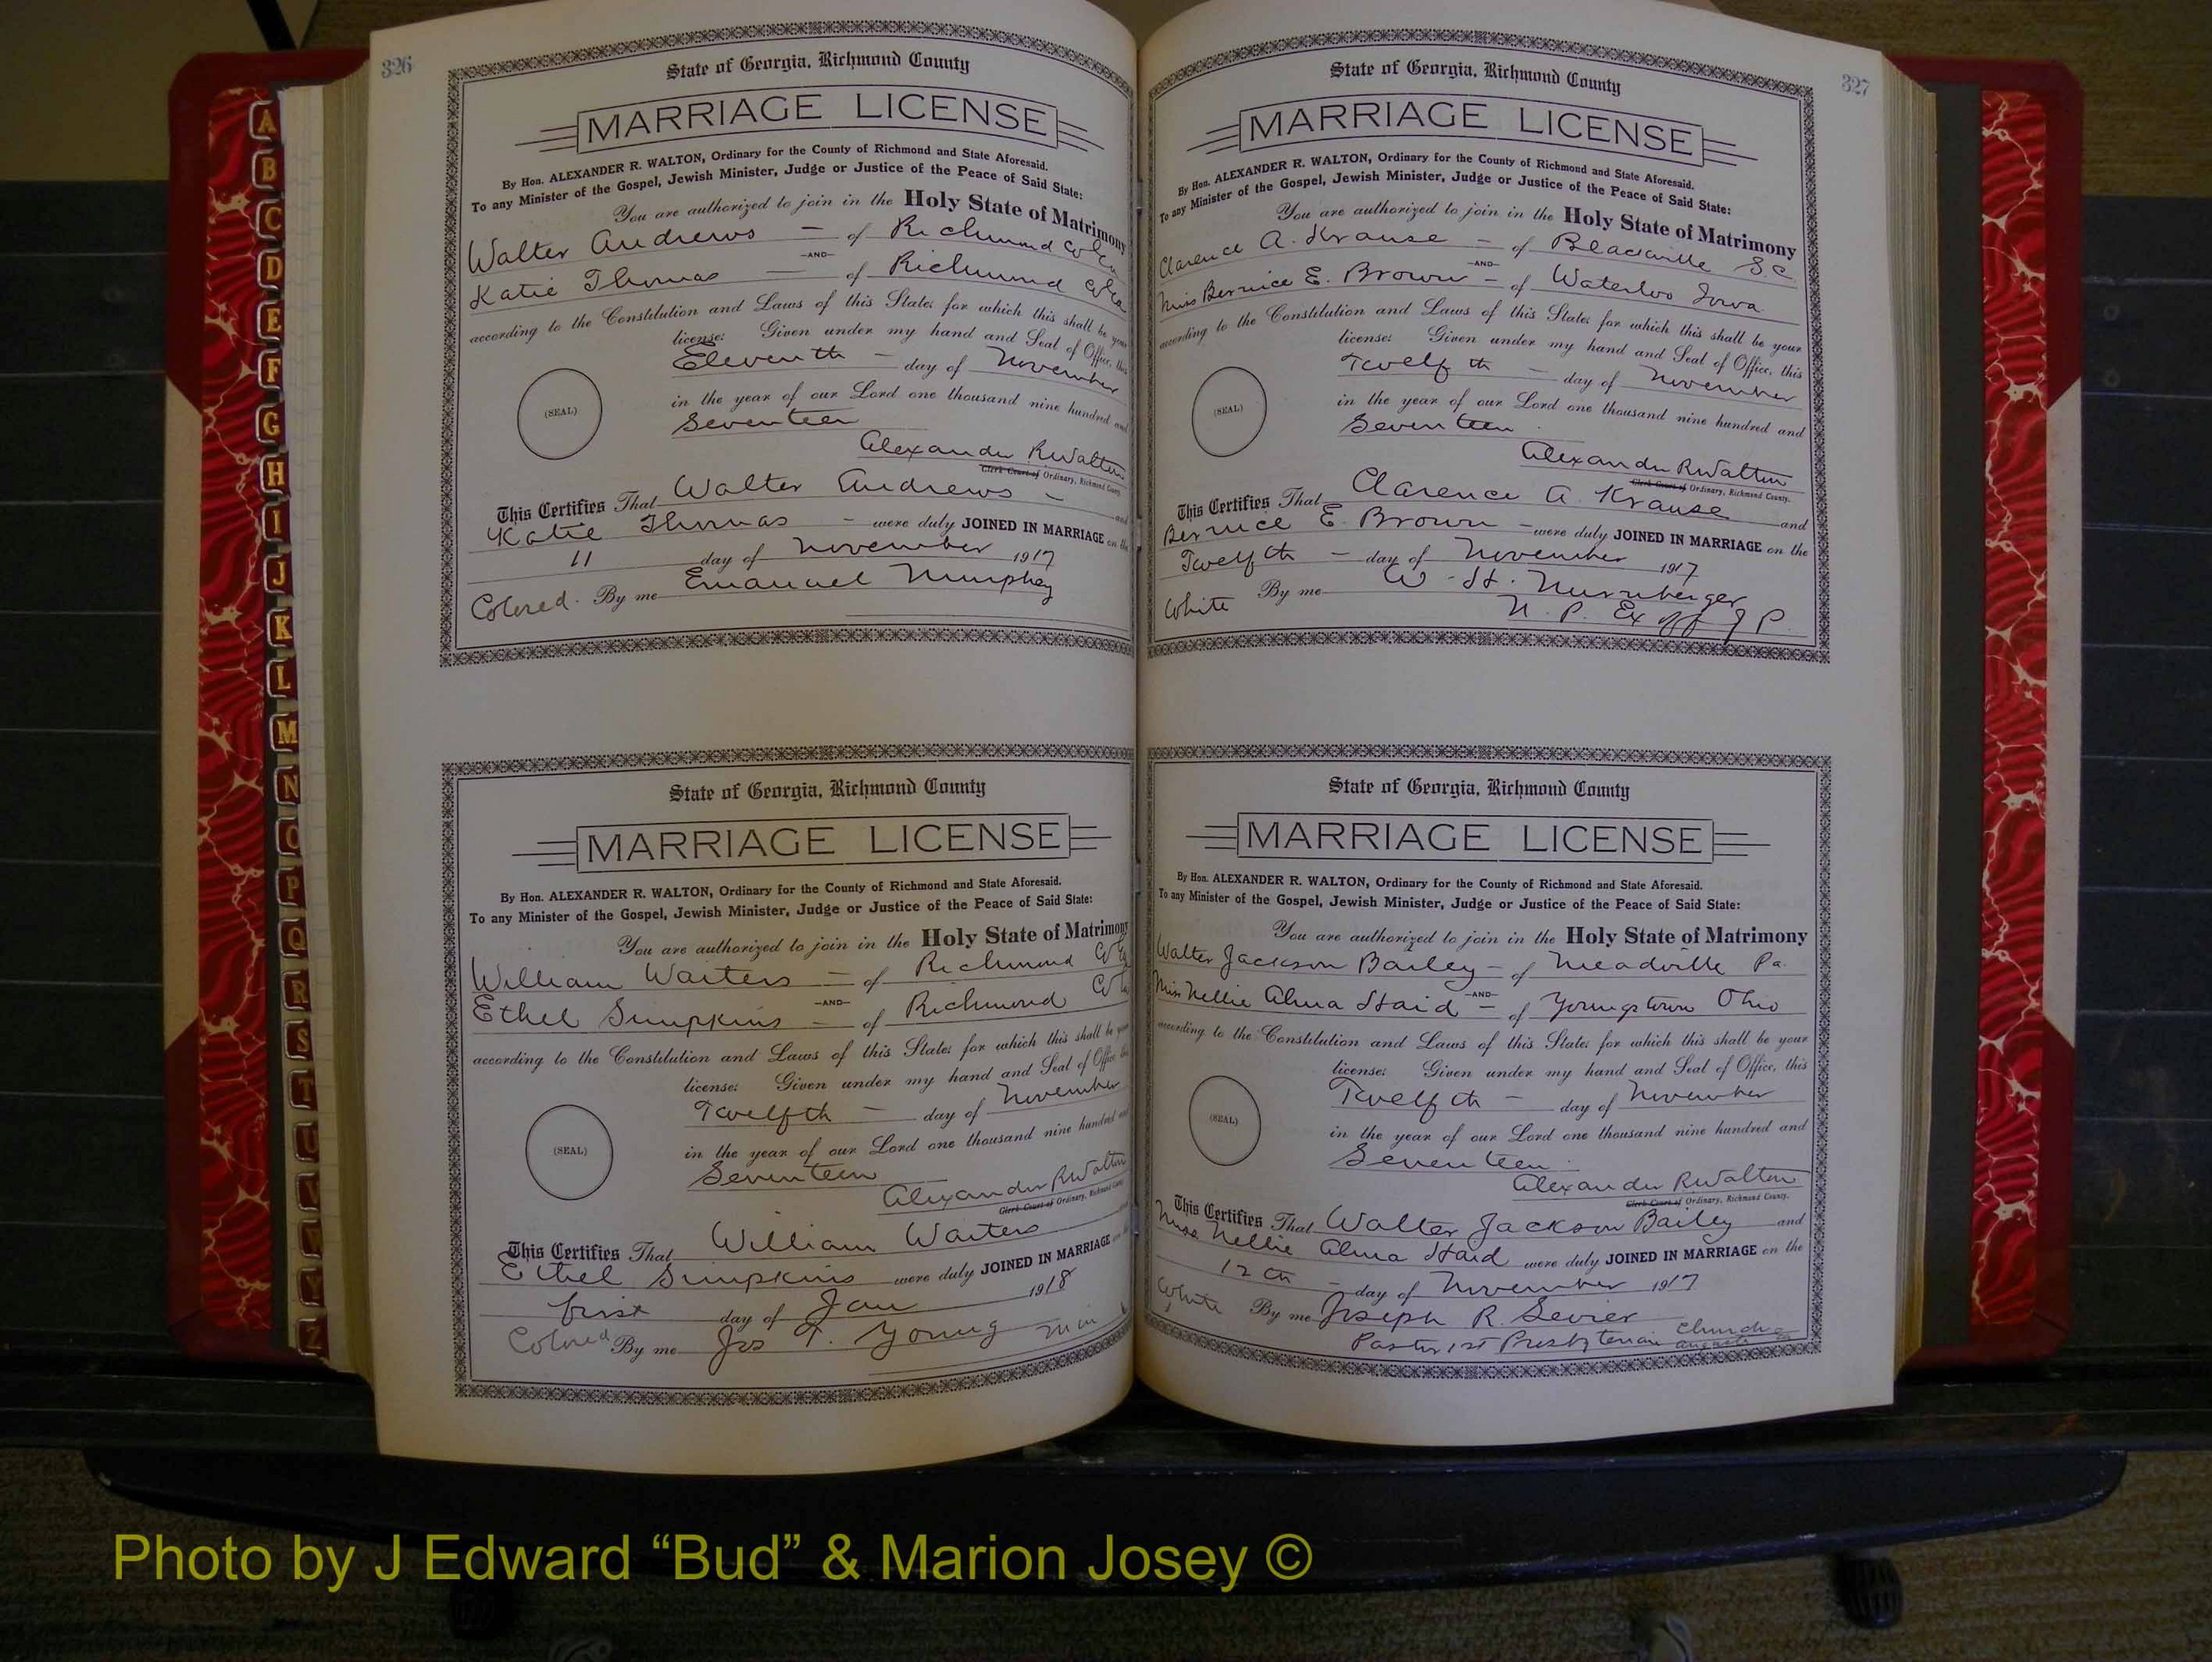 326
State of Georgia, Richmond County
MARRIAGE LICENSE
By Hon. ALEXANDER R. WALTON, Ordinary for the County of Richmond and State Aforesaid.
To any Minister of the Gospel, Jewish Minister, Judge or Justice of the Peace of Said State:
You are authorized to join in the Holy State of Matrimony
Walter Andrews — of Richmond Co Ga
—AND—
Katie Thomas — of Richmond Co Ga
according to the Constitution and Laws of this State; for which this shall be your
license: Given under my hand and Seal of Office, this
Eleventh — day of November
(SEAL)
in the year of our Lord one thousand nine hundred and
Seventeen
Alexander R Walton
Clerk Court of Ordinary, Richmond County.
This Certifies That Walter Andrews — and
Katie Thomas — were duly JOINED IN MARRIAGE on the
11 day of November 1917
Colored. By me Emanuel Murphey
State of Georgia, Richmond County
MARRIAGE LICENSE
By Hon. ALEXANDER R. WALTON, Ordinary for the County of Richmond and State Aforesaid.
To any Minister of the Gospel, Jewish Minister, Judge or Justice of the Peace of Said State:
You are authorized to join in the Holy State of Matrimony
William Waiters — of Richmond Co Ga
—AND—
Ethel Simpkins — of Richmond Co Ga
according to the Constitution and Laws of this State; for which this shall be your
license: Given under my hand and Seal of Office this
Twelfth — day of November
(SEAL)
in the year of our Lord one thousand nine hundred and
Seventeen
Alexander R Walton
Clerk Court of Ordinary, Richmond County.
This Certifies That William Waiters
Ethel Simpkins were duly JOINED IN MARRIAGE on the
first day of Jan 1918
Colored By me Jos T. Young Min
327
State of Georgia, Richmond County
MARRIAGE LICENSE
By Hon. ALEXANDER R. WALTON, Ordinary for the County of Richmond and State Aforesaid.
To any Minister of the Gospel, Jewish Minister, Judge or Justice of the Peace of Said State:
You are authorized to join in the Holy State of Matrimony
Clarence A. Krause — of Blackville S.C.
—AND—
Miss Bernice E. Brown — of Waterloo Iowa
according to the Constitution and Laws of this State; for which this shall be your
license: Given under my hand and Seal of Office, this
Twelfth — day of November
(SEAL)
in the year of our Lord one thousand nine hundred and
Seventeen
Alexander R Walton
Clerk Court of Ordinary, Richmond County.
This Certifies That Clarence A. Krause and
Bernice E. Brown — were duly JOINED IN MARRIAGE on the
Twelfth — day of November 1917
White By me W. H. Nurnberger
N. P. Ex off J P.
State of Georgia, Richmond County
MARRIAGE LICENSE
By Hon. ALEXANDER R. WALTON, Ordinary for the County of Richmond and State Aforesaid.
To any Minister of the Gospel, Jewish Minister, Judge or Justice of the Peace of Said State:
You are authorized to join in the Holy State of Matrimony
Walter Jackson Bailey — of Meadville Pa.
—AND—
Miss Nellie Alma Haid — of Youngstown Ohio
according to the Constitution and Laws of this State; for which this shall be your
license: Given under my hand and Seal of Office, this
Twelfth — day of November
(SEAL)
in the year of our Lord one thousand nine hundred and
Seventeen
Alexander R Walton
Clerk Court of Ordinary, Richmond County.
This Certifies That Walter Jackson Bailey and
Miss Nellie Alma Haid were duly JOINED IN MARRIAGE on the
12th — day of November 1917
White By me Joseph R. Sevier
Pastor 1st Presbyterian Church
Augusta Ga
A
B
C
D
E
F
G
H
I
J
K
L
M
N
O
P
Q
R
S
T
U
V
W
Y
Z
Photo by J Edward “Bud” & Marion Josey ©